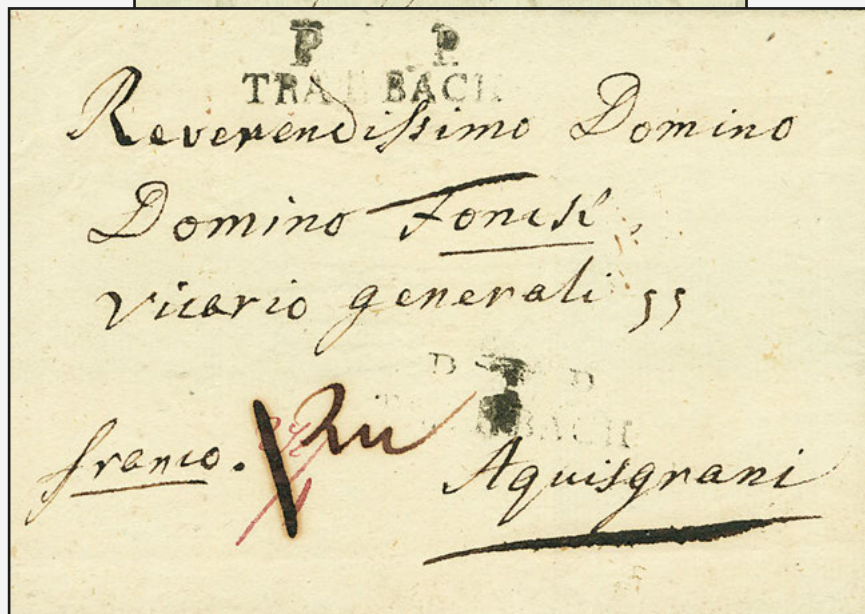 P. P.
TRARBACH
Reverendissimo Domino
Domino Fonck,
vicario generali
P. P.
TRARBACH
franco.
Aquisgrani